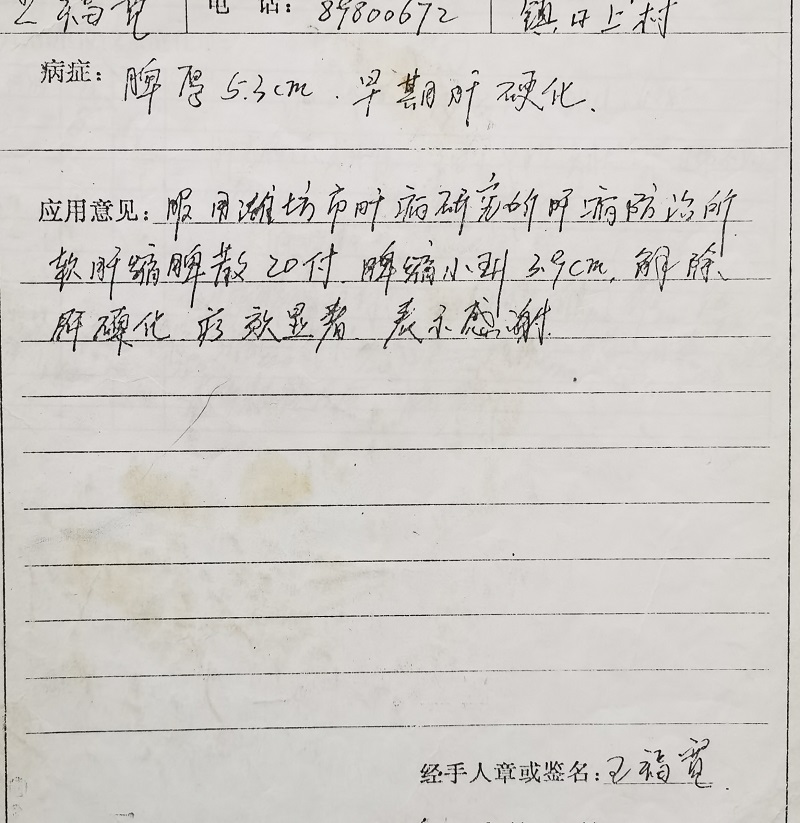 王福寛 电 话： 89800672 镇日上村
病症： 脾厚5.3cm．早期肝硬化、
应用意见：服用潍坊市肝病研究所肝病防治所
软肝缩脾散20付．脾缩小到3.9cm，解除
肝硬化．疗效显著．表示感谢．
经手人章或签名：王福寛．